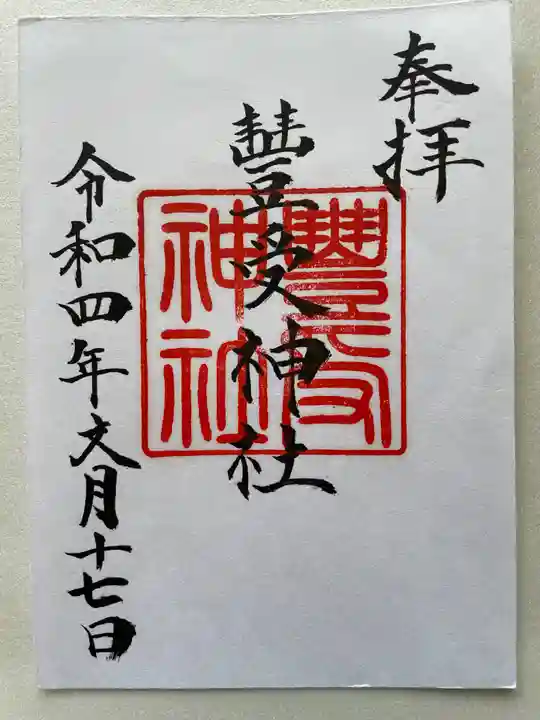 奉拝
豐受神社
豐受
神社
令和四年文月十七日